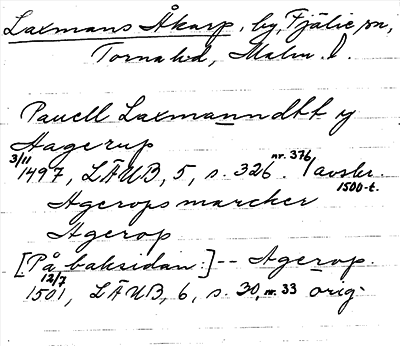 Laxmans Åkarp, by, Fjälie sn,
Torna hd, Malm. l.
Pauell Laxmanndtt y
Aagerup
3/11 1497, LÄUB, 5, s. 326. nr. 376/avskr. 1500-t.
Agerops marcker
Agerop
[På baksidan:] -- Agerop.
12/7 1501, LÄUB, 6, s. 30, nr. 33 orig.